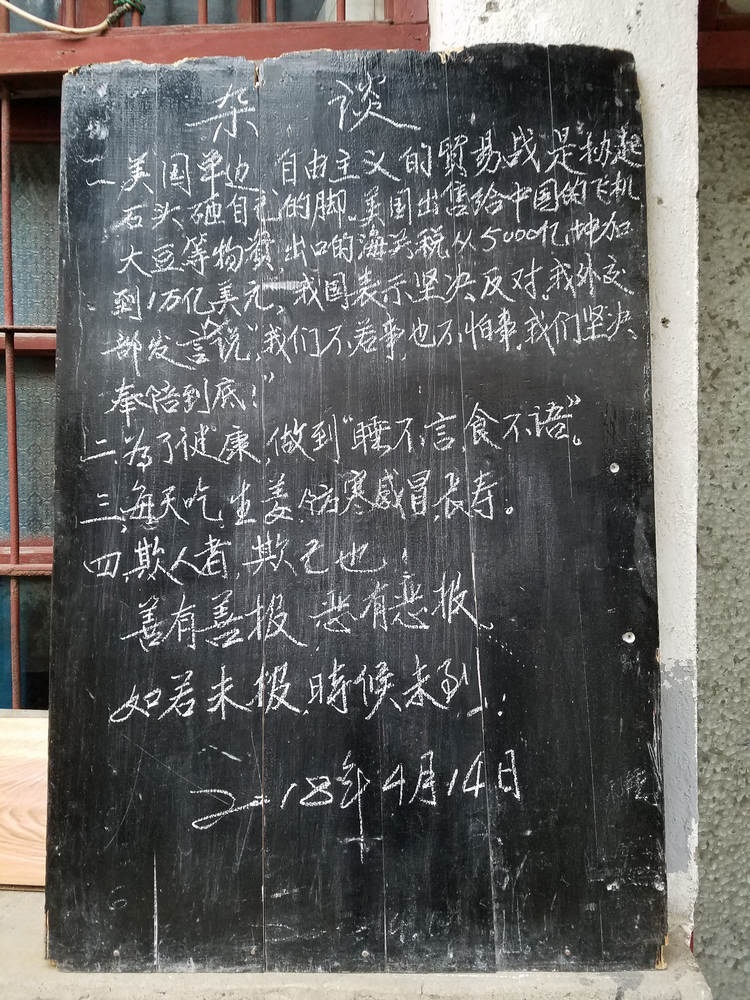 杂谈
一、美国单边、自由主义的贸易战是搬起
石头、砸自己的脚。美国出售给中国的飞机
大豆等物资,出口的海关税从5000亿,增加
到1万亿美元、我国表示坚决反对。我外交
部发言说"我们不惹事,也不怕事,我们坚决
奉陪到底!"
二、为了健康,做到"睡不言,食不语"。
三、每天吃生姜,伤寒感冒,长寿。
四、欺人者,欺己也!
善有善报,恶有恶报。
如若未报,時候未到!
二〇18年4月14日